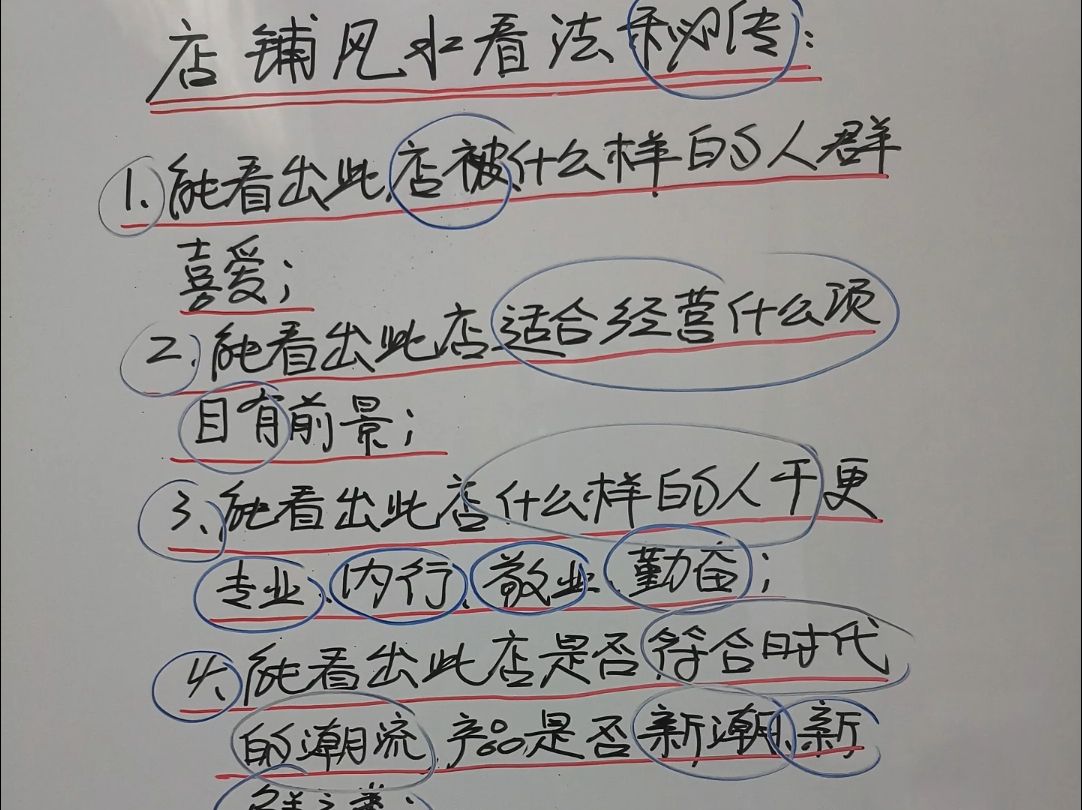 店铺风水看法秘传:
1.能看出此店被什么样的人群
喜爱;
2.能看出此店适合经营什么项
目有前景;
3、能看出此店什么样的人干更
专业、内行、敬业、勤奋;
4、能看出此店是否符合时代
的潮流,产品是否新潮、新
鲜之类;